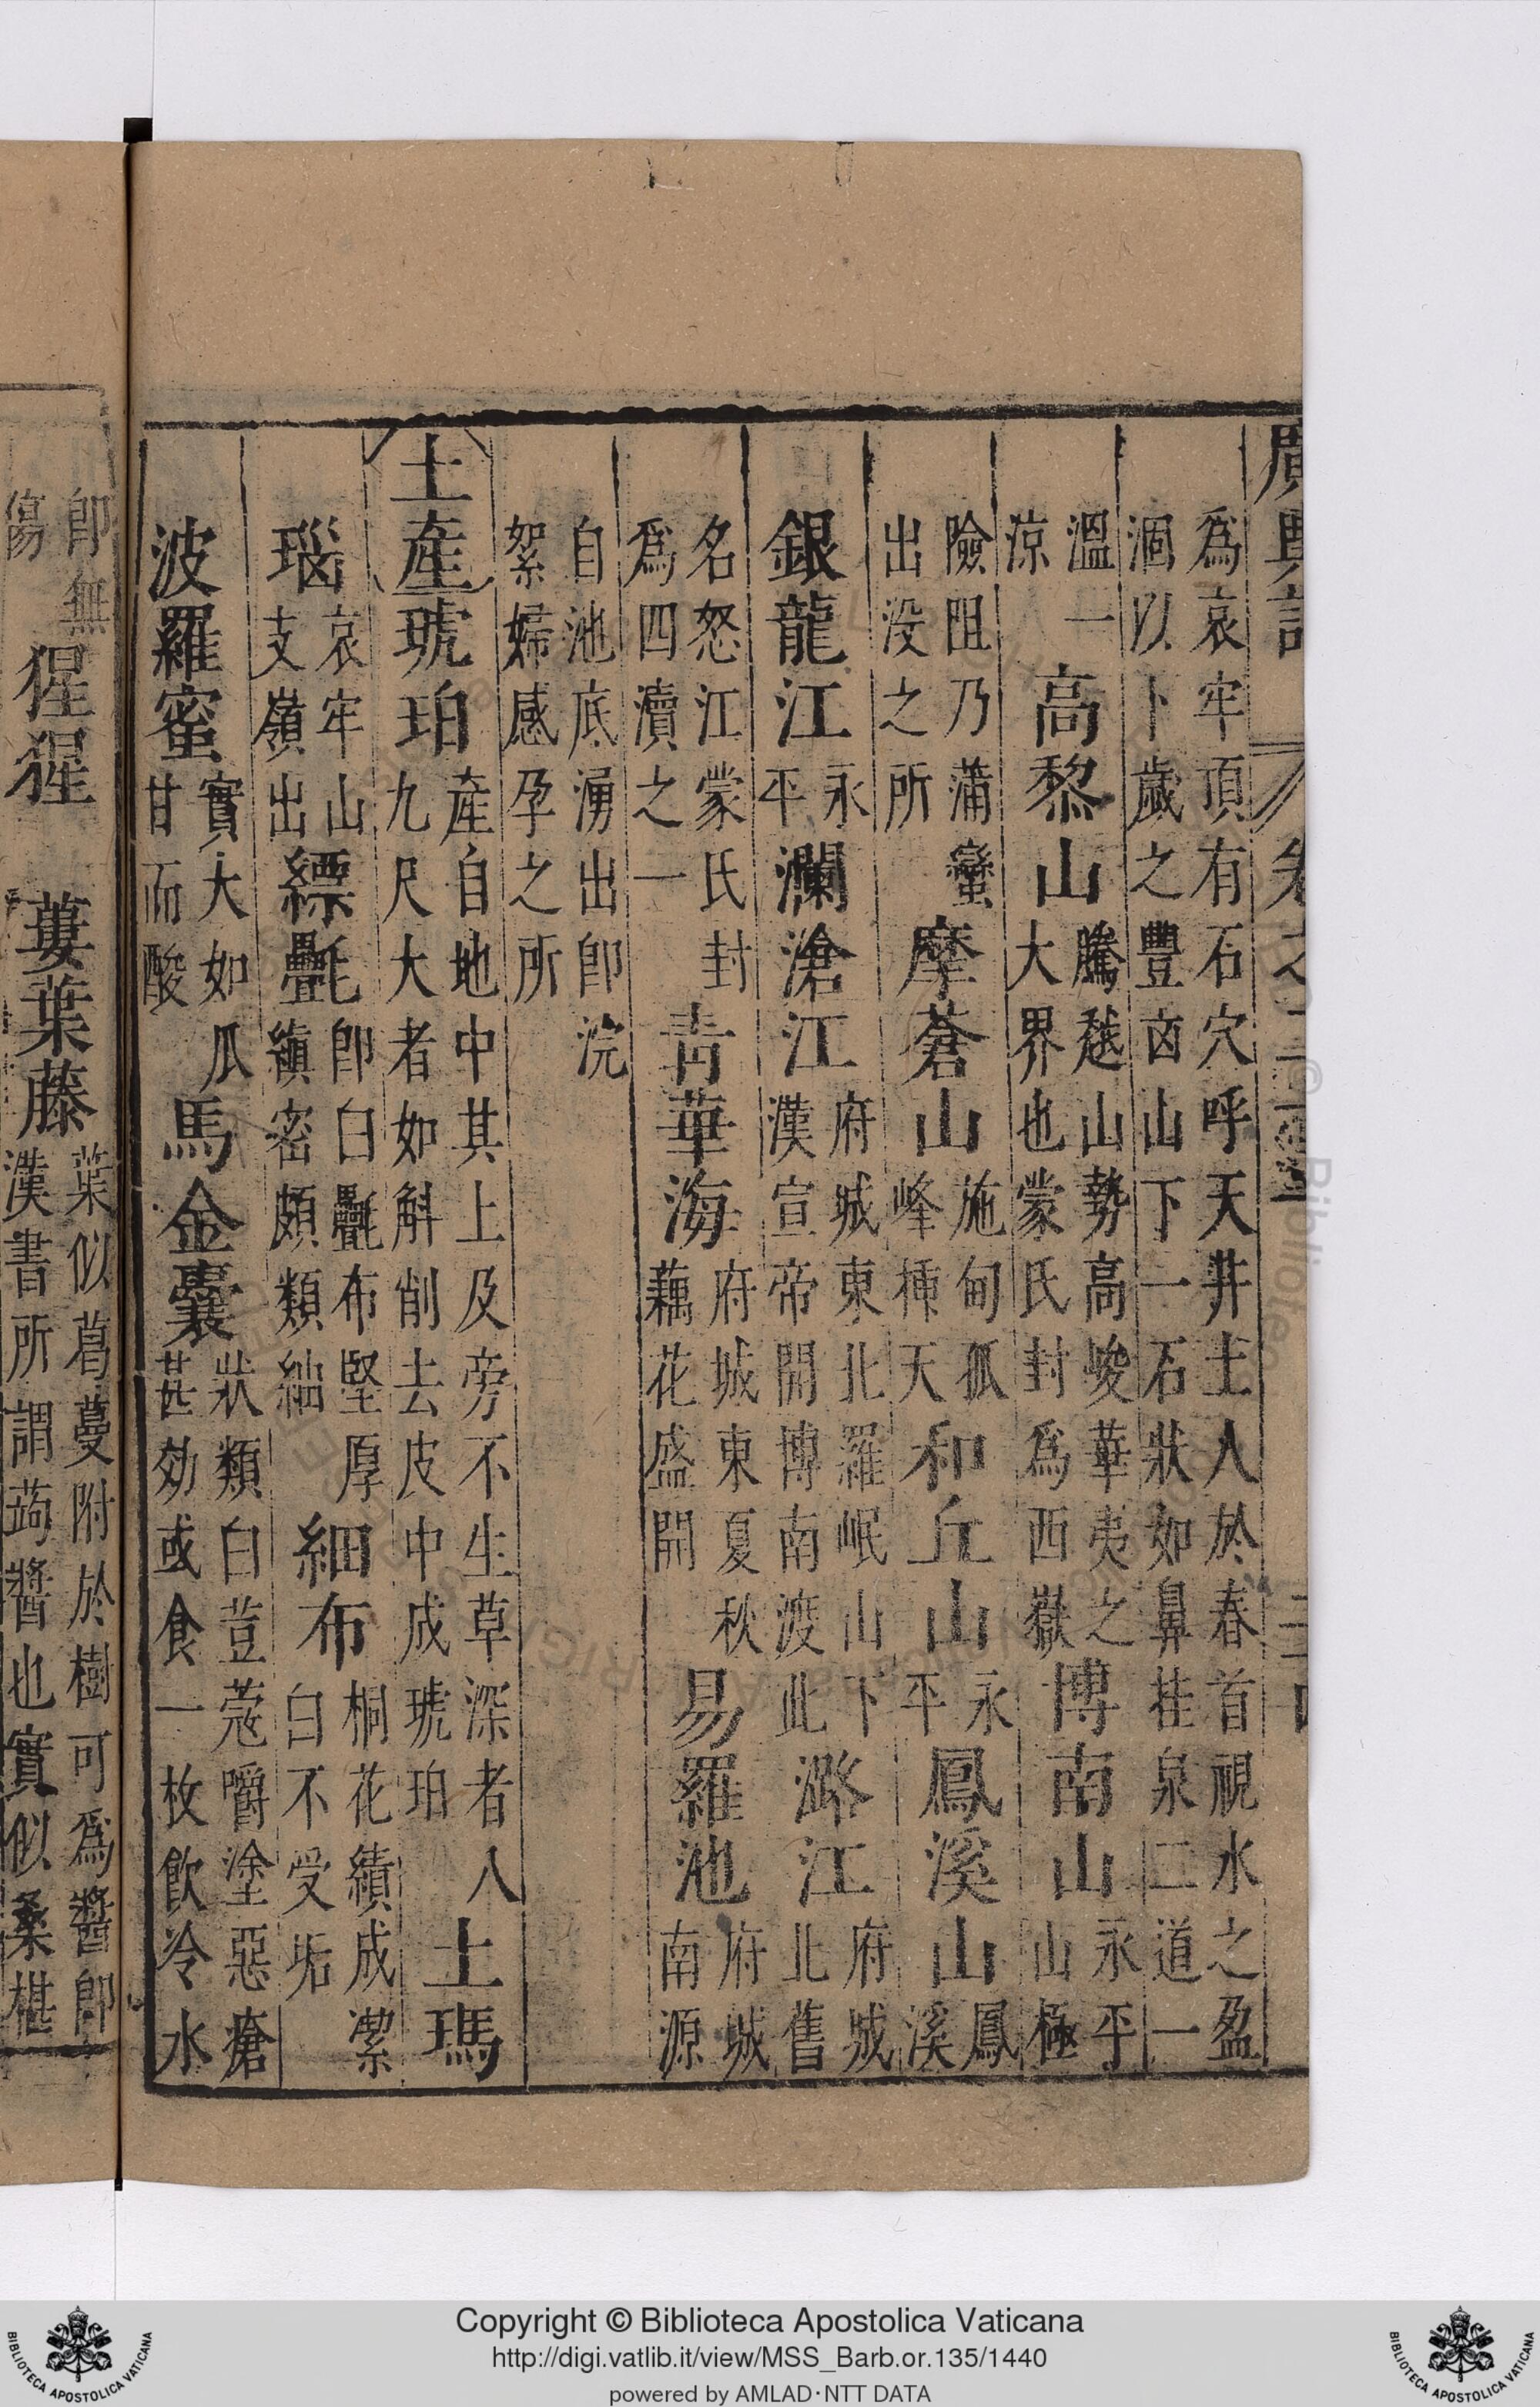 廣輿記 卷之二
爲哀牢頂有石穴呼天井土人於春首視水之盈
涸以卜歲之豐凶山下一石狀如鼻挂泉二道一
溫一涼 高黎山 騰越山勢高峻華夷之大界也蒙氏封爲西嶽 博南山 永平山極
險阻乃蒲蠻出没之所 摩蒼山 施甸孤峰揷天 和丘山 永平 鳳溪山 鳳溪
銀龍江 永平 瀾滄江 府城東北羅岷山下漢宣帝開博南渡此 潞江 府城北舊
名怒江蒙氏封爲四瀆之一 靑華海 府城東夏秋藕花盛開 易羅池 府城南源
自池底湧出卽浣絮婦感孕之所
土產 琥珀 產自地中其上及旁不生草深者八九尺大者如斛削去皮中成琥珀 土瑪
瑙 哀牢山支嶺出 縹氎 卽白氎布堅厚縝密頗類紬 細布 桐花績成潔白不受垢
波羅蜜 實大如瓜甘而酸 馬金囊 狀類白荳蔻嚼塗惡瘡甚効或食一枚飲冷水
卽無傷 猩猩 蔞葉藤 葉似葛蔓附於樹可爲醬卽漢書所謂蒟醬也實似桑椹
Copyright © Biblioteca Apostolica Vaticana
http://digi.vatlib.it/view/MSS_Barb.or.135/1440
powered by AMLAD·NTT DATA
BIBLIOTECA APOSTOLICA VATICANA
BIBLIOTECA APOSTOLICA VATICANA